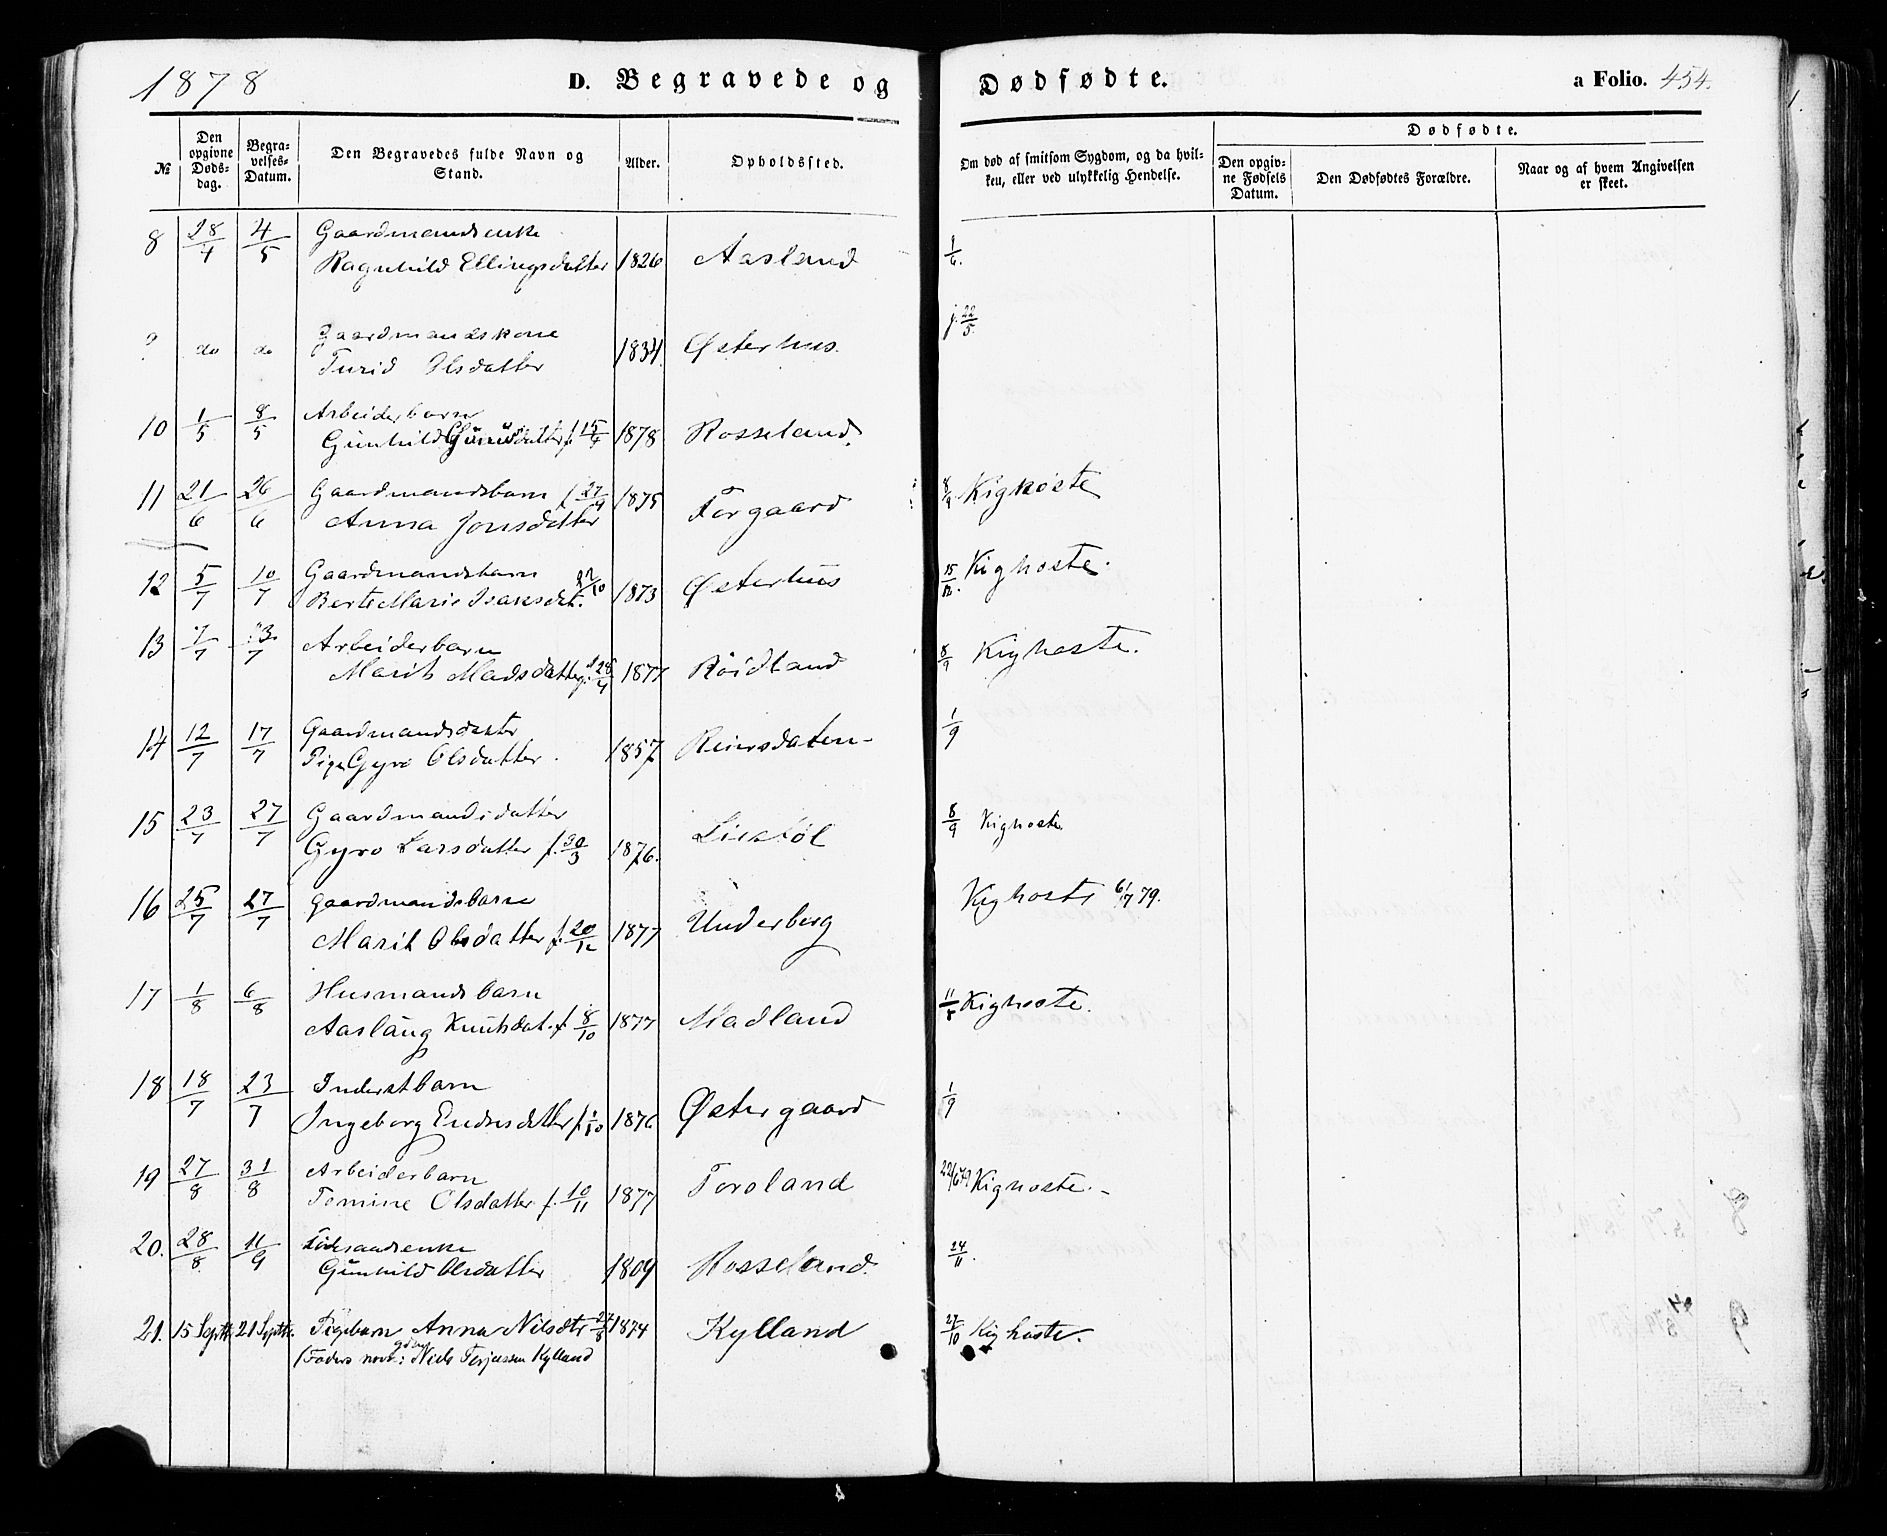 1878
D. Begravede og Dødfødte.
a Folio. 454.
№
Den opgivne Døds-dag.
Begra-velses-Datum.
Den Begravedes fulde Navn og Stand.
Alder.
Opholdssted.
Om død af smitsom Sygdom, og da hvil-
ken, eller ved ulykkelig Hendelse.
Dødfødte.
Den opgiv-ne Fødsels Datum.
Den Dødfødtes Forældre.
Naar og af hvem Angivelsen er skeet.
8 28/4 4/5 Gaardmandsenke
Ragnhild Ellingsdatter 1826 Aasland
do do Gaardmandskone
Turid Olsdatter 1834 Østerhus. j. 22/5.
10 1/5 8/5 Arbeiderbarn
Gunhild f. 15/4 1878 Rosseland.
11 21/6 26/6 Gaardmandsbarn f 27/9 1875 8/9 Kighoste
Anna Jonsdatter Torgaard
12 5/7 10/7 Gaardmandsbarn
Berte Marie Isaksdat. 1873 Østerhus 15/12. Kighoste.
13 7/7 13/7 Arbeiderbarn
Marit Madsdatter 28/4 1877 Røidland 8/9 Kighoste.
14 12/7 17/7 Gaardmandsdatter
Pige Gyro Olsdatter. 1857 1/9
15 23/7 27/7 Gaardmandsdatter
Gyro Larsdatter f. 30/3 1876. Liestøl 8/9 Kighoste
16 25/7 27/7 Gaardmandsbarn
Marit Olsdatter f. 20/12 1877 Underberg Kighoste 6/7 79.
17 1/8 6/8 Husmandsbarn
Aaslaug Knutsdat. f. 8/10 1877 Madland Kighoste.
18 18/7 23/7 Inderstbarn
Ingeborg Endresdatter f. 1876 Østergaard 1/9
19 27/8 31/8 Arbeiderbarn
Tomine Olsdatter f. 10/11 1877 Toroland 22/6 79 Kighoste.-
20. 28/8 11/9 Føderaadsenke
Gunhild Olsdatter 1809 Rosseland. 24/11.
21. 15 Septb. 21 Septbr. Pigebarn Anna Nilsdtr 27/8 1874 Kylland 27/10 Kighoste.
(Faders navn: gdm Niels Terjessen Kylland